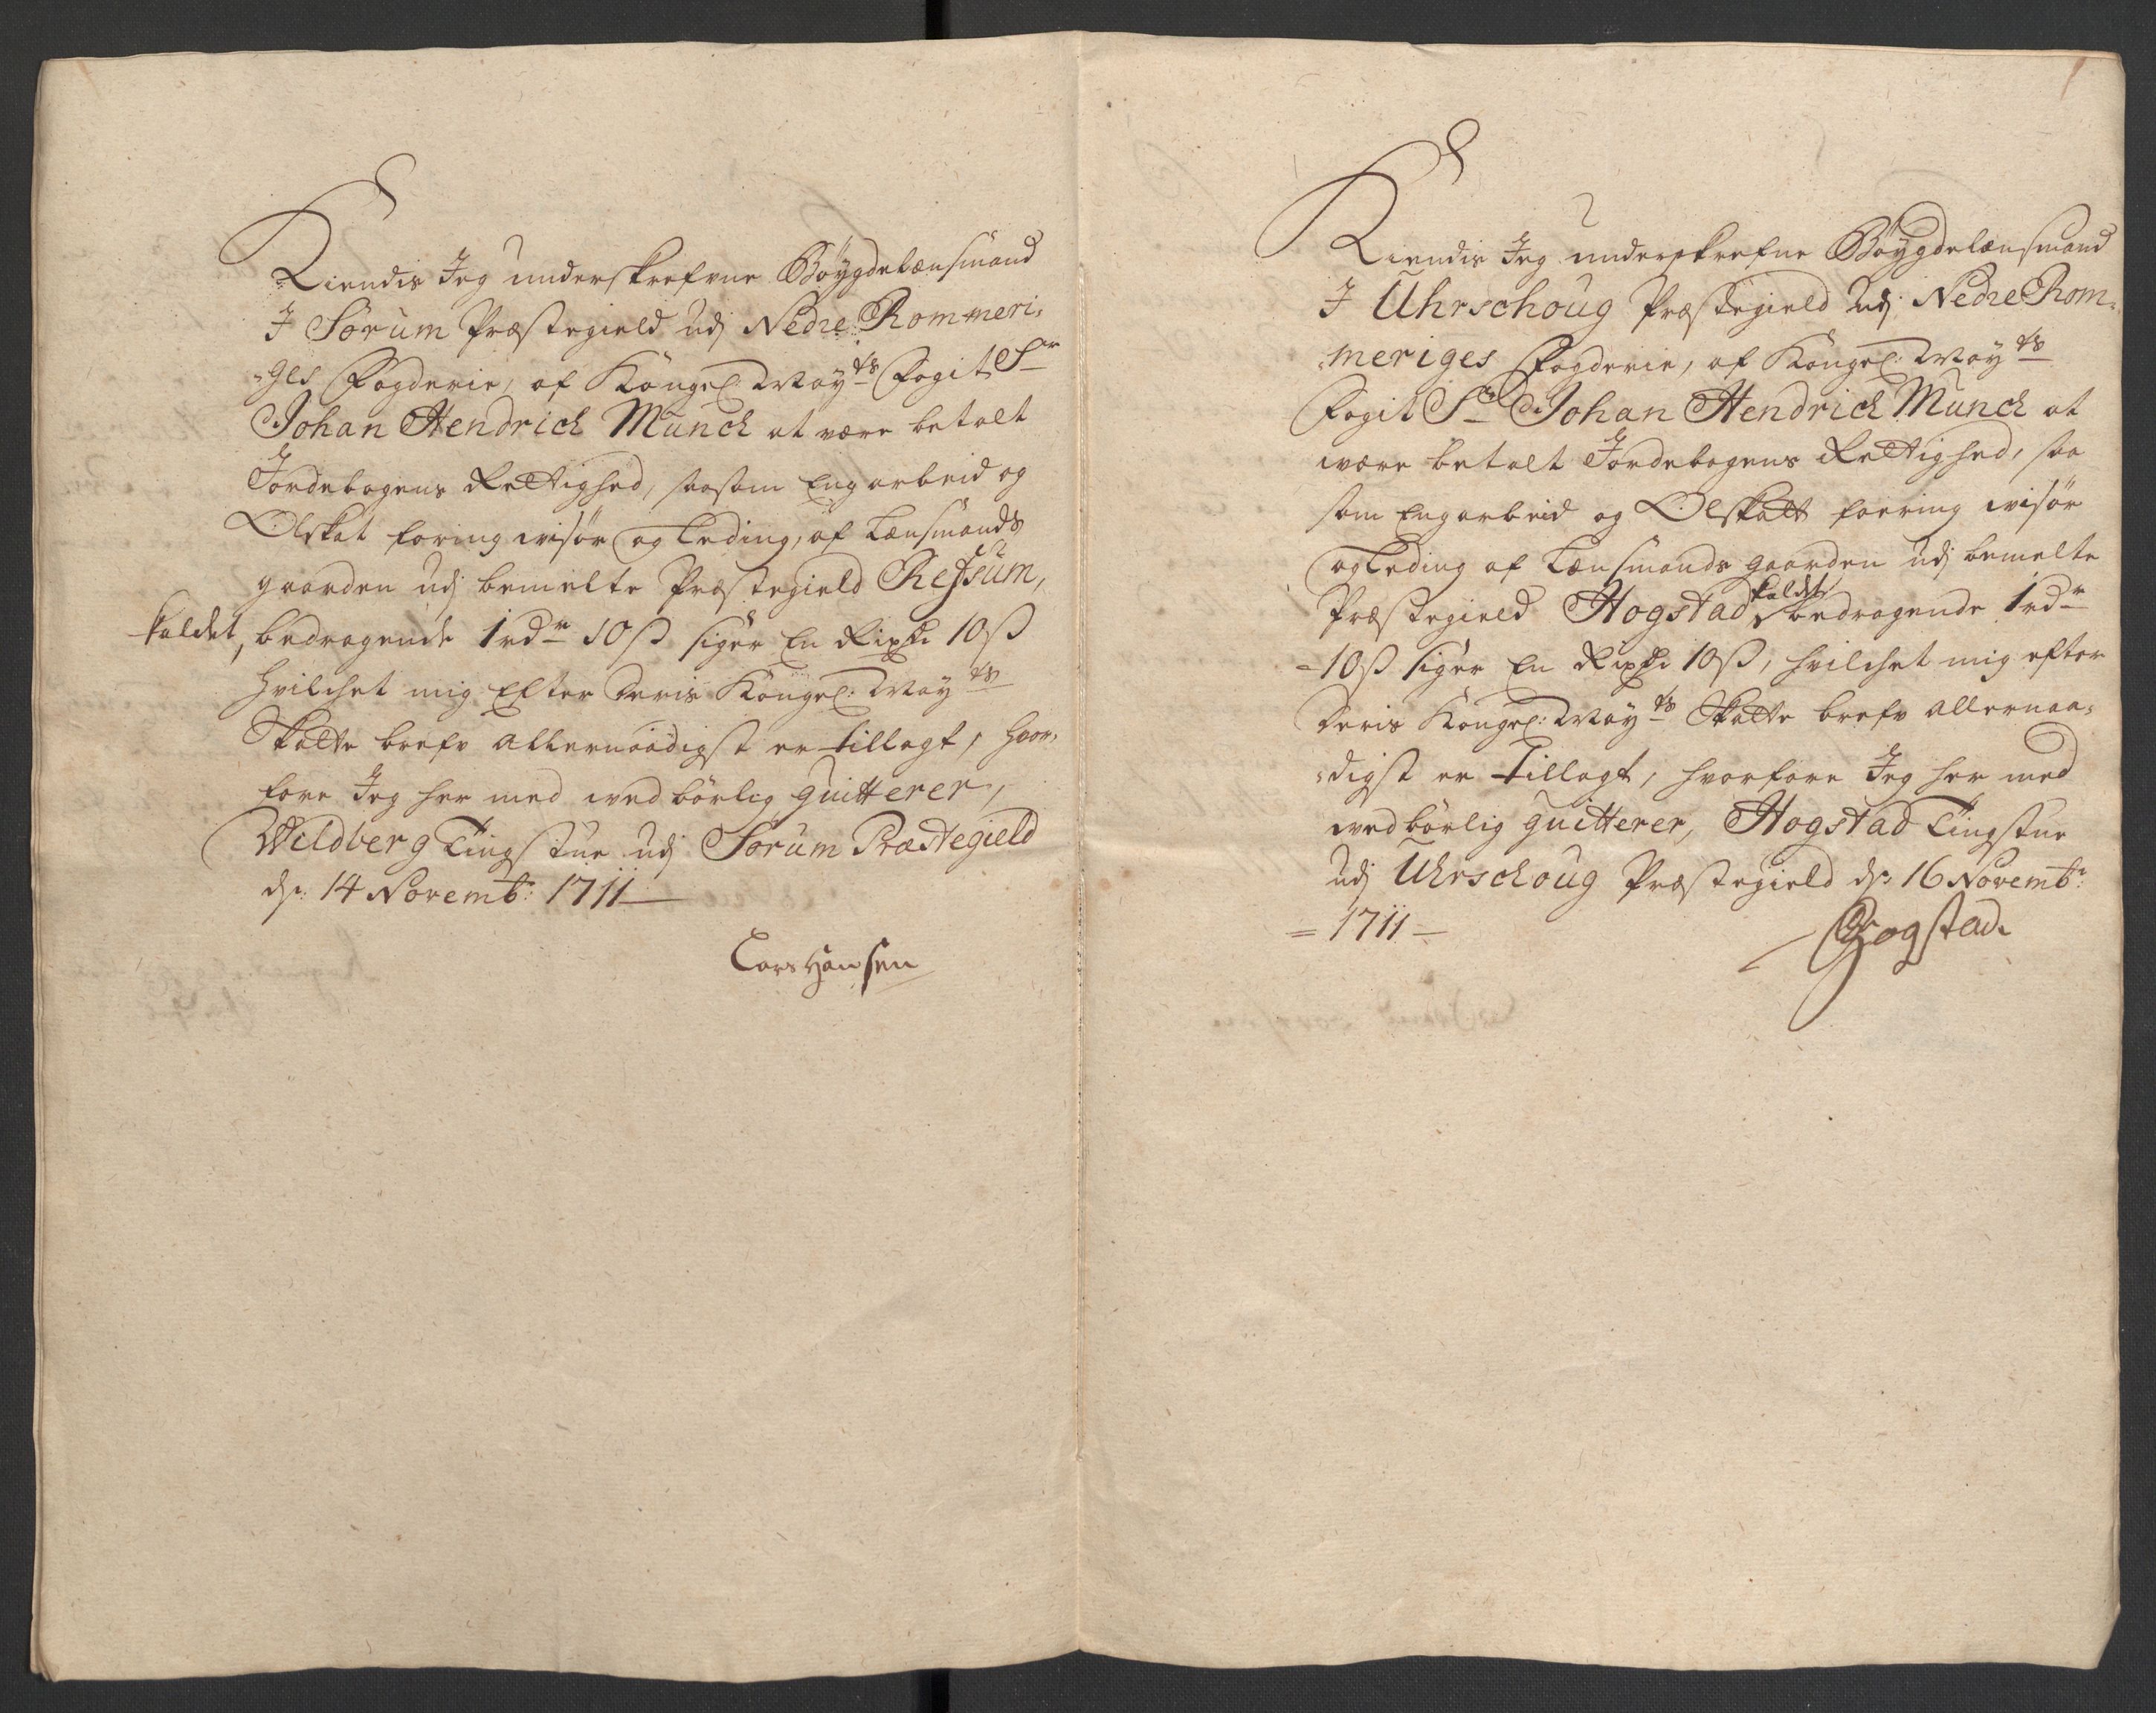 Kiendis Jeg underskrefvne Böygdelænsmand
I Sørum Præstegield udj Nedre Rommeri-
-ges Fogderie, af Kongel: May.ts Fogit Sr
Johan Hendrich Munch at være betalt
Jordebogens Rettighed, saasom Eng arbeid og
Olskat foring wisør og Leding, af Lænsmands
gaarden udj bemelte Præstegield Refsum,
kaldet, bedragende 1 rdr 10 ß siger En Rixdr 10 ß
hvilchet mig Efter Deris Kongel: May.ts
Skatte brefv Allernaadigst er tillagt, hvor-
fore Jeg her med wedbörlig quitterer,
Wildberg Tingstue udj Sørum Præstegield
d: 14 Novemb: 1711
Lars Hansen
Kiendis Jeg underskrefne Böygdelænsmand
I Uhrschoug Præstegield udj Nedre Rom-
-meriges Fogderie, af Kongel: May.ts
Fogit Sr Johan Hendrich Munch at
være betalt Jordebogens Rettighed, saa
som Eng arbeid og Olskatt foering wisør
og Leding af Lænsmands gaarden udj bemelte
Præstegield Hogstad kaldet bedragende 1 rdr
-10 ß siger En Rixdr 10 ß, hvilchet mig efter
Deris Kongel: May.ts Skatte brefv allernaa-
-digst er tillagt, hvorfore Jeg her med
wedbörlig quitterer, Hogstad Tingstue
udj Uhrschoug Præstegield d: 16 Novemb:
= 1711 -
Hogstad.